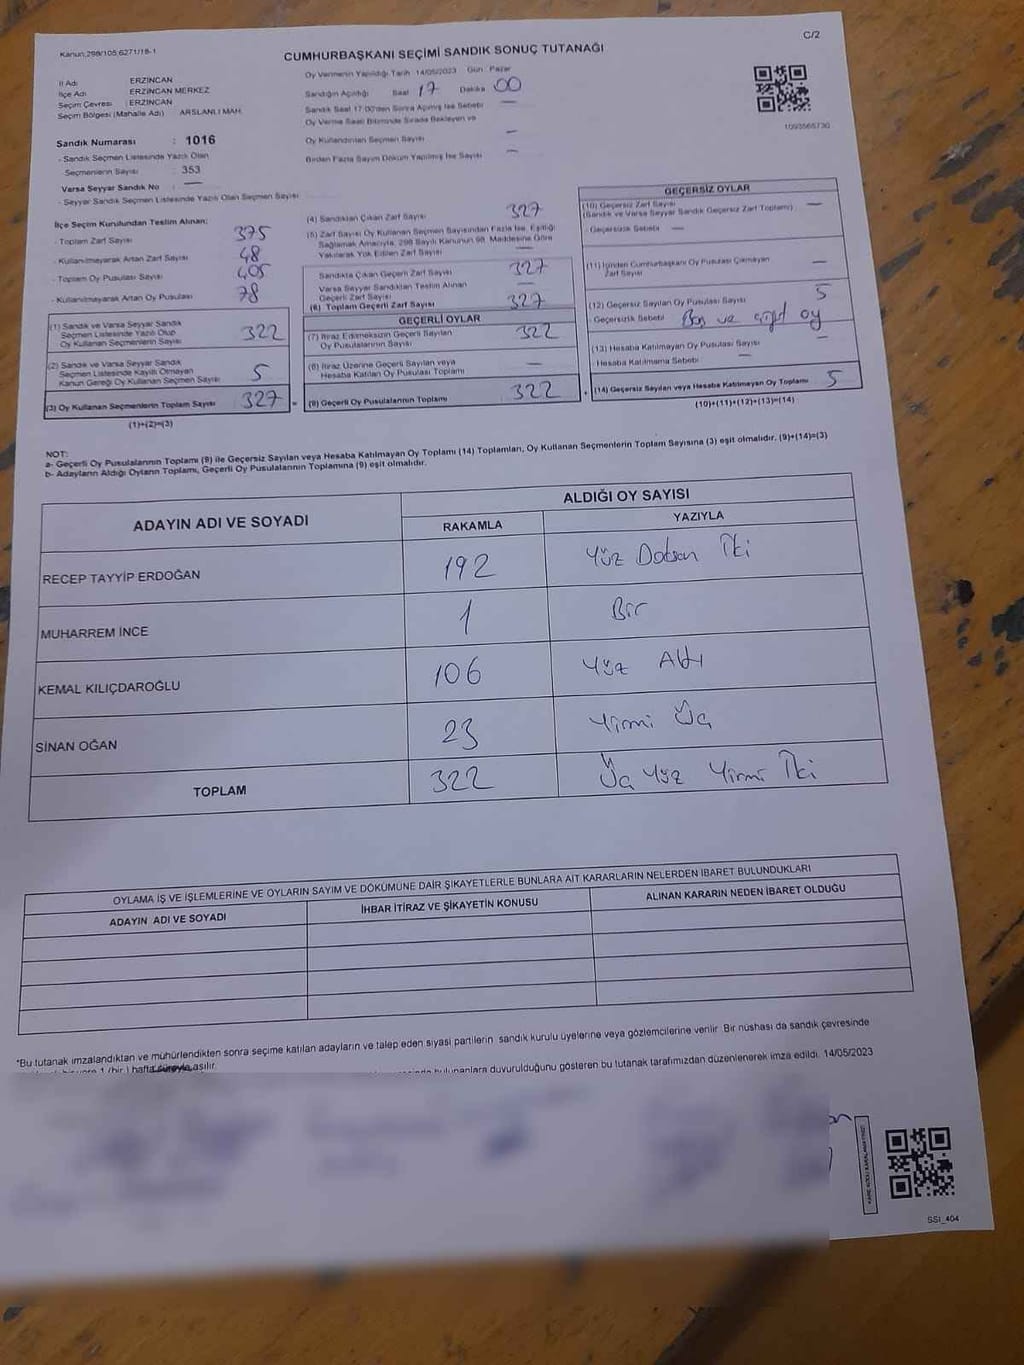 Kanun:298/105,6271/18-1
C/2
CUMHURBAŞKANI SEÇİMİ SANDIK SONUÇ TUTANAĞI
İl Adı ERZİNCAN
İlçe Adı ERZİNCAN MERKEZ
Seçim Çevresi : ERZİNCAN
Seçim Bölgesi (Mahalle Adı) ARSLANLI MAH.
Oy Vermenin Yapıldığı Tarih 14/05/2023 Gün Pazar
Sandığın Açıldığı Saat 17 Dakika 00
Sandık Saat 17:00'den Sonra Açılmış İse Sebebi —
Oy Verme Saati Bitiminde Sırada Bekleyen ve
Oy Kullandırılan Seçmen Sayısı —
Birden Fazla Sayım Döküm Yapılmış İse Sayısı —
1093565730
Sandık Numarası : 1016
- Sandık Seçmen Listesinde Yazılı Olan
Seçmenlerin Sayısı : 353
Varsa Seyyar Sandık No : —
- Seyyar Sandık Seçmen Listesinde Yazılı Olan Seçmen Sayısı
İlçe Seçim Kurulundan Teslim Alınan:
- Toplam Zarf Sayısı 375
- Kullanılmayarak Artan Zarf Sayısı 48
- Toplam Oy Pusulası Sayısı 405
- Kullanılmayarak Artan Oy Pusulası 78
(1) Sandık ve Varsa Seyyar Sandık
Seçmen Listesinde Yazılı Olup
Oy Kullanan Seçmenlerin Sayısı 322
(2) Sandık ve Varsa Seyyar Sandık
Seçmen Listesinde Kayıtlı Olmayan
Kanun Gereği Oy Kullanan Seçmen Sayısı 5
(3) Oy Kullanan Seçmenlerin Toplam Sayısı 327 =
(1)+(2)=(3)
(4) Sandıktan Çıkan Zarf Sayısı 327
(5) Zarf Sayısı Oy Kullanan Seçmen Sayısından Fazla İse, Eşitliği
Sağlamak Amacıyla, 298 Sayılı Kanunun 98. Maddesine Göre
Yakılarak Yok Edilen Zarf Sayısı —
Sandıkta Çıkan Geçerli Zarf Sayısı 327
Varsa Seyyar Sandıktan Teslim Alınan
Geçerli Zarf Sayısı —
(6) Toplam Geçerli Zarf Sayısı 327
GEÇERLİ OYLAR
(7) İtiraz Edilmeksizin Geçerli Sayılan
Oy Pusulalarının Sayısı 322
(8) İtiraz Üzerine Geçerli Sayılan veya
Hesaba Katılan Oy Pusulası Toplamı —
(9) Geçerli Oy Pusulalarının Toplamı 322 +
GEÇERSİZ OYLAR
(10) Geçersiz Zarf Sayısı —
(Sandık ve Varsa Seyyar Sandık Geçersiz Zarf Toplamı)
- Geçersizlik Sebebi —
(11) İçinden Cumhurbaşkanı Oy Pusulası Çıkmayan
Zarf Sayısı —
(12) Geçersiz Sayılan Oy Pusulası Sayısı 5
- Geçersizlik Sebebi Boş ve çift oy
(13) Hesaba Katılmayan Oy Pusulası Sayısı —
- Hesaba Katılmama Sebebi —
(14) Geçersiz Sayılan veya Hesaba Katılmayan Oy Toplamı 5
(10)+(11)+(12)+(13)=(14)
NOT:
a- Geçerli Oy Pusulalarının Toplamı (9) ile Geçersiz Sayılan veya Hesaba Katılmayan Oy Toplamı (14) Toplamları, Oy Kullanan Seçmenlerin Toplam Sayısına (3) eşit olmalıdır. (9)+(14)=(3)
b- Adayların Aldığı Oyların Toplamı, Geçerli Oy Pusulalarının Toplamına (9) eşit olmalıdır.
ADAYIN ADI VE SOYADI
ALDIĞI OY SAYISI
RAKAMLA YAZIYLA
RECEP TAYYİP ERDOĞAN 192 Yüz Doksan İki
MUHARREM İNCE 1 Bir
KEMAL KILIÇDAROĞLU 106 Yüz Altı
SİNAN OĞAN 23 Yirmi Üç
TOPLAM 322 Üç Yüz Yirmi İki
OYLAMA İŞ VE İŞLEMLERİNE VE OYLARIN SAYIM VE DÖKÜMÜNE DAİR ŞİKAYETLERLE BUNLARA AİT KARARLARIN NELERDEN İBARET BULUNDUKLARI
ADAYIN ADI VE SOYADI İHBAR İTİRAZ VE ŞİKAYETİN KONUSU ALINAN KARARIN NEDEN İBARET OLDUĞU
*Bu tutanak imzalandıktan ve mühürlendikten sonra seçime katılan adayların ve talep eden siyasi partilerin sandık kurulu üyelerine veya gözlemcilerine verilir. Bir nüshası da sandık çevresinde
1 (bir) hafta süreyle asılır.
bulunanlara duyurulduğunu gösteren bu tutanak tarafımızdan düzenlenerek imza edildi. 14/05/2023
SSI_404